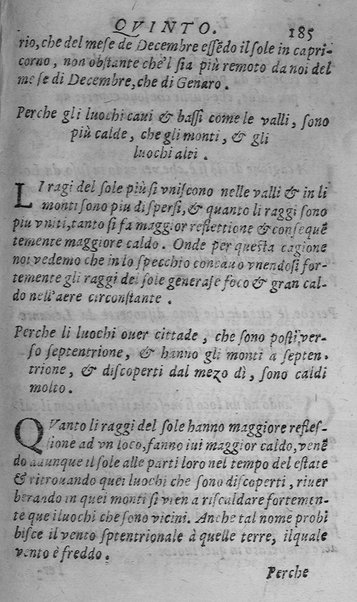 QVINTO. 185
rio, che del mese de Decembre essẽdo il sole in capri
corno, non obstante che'l sia più remoto da noi del
mese di Decembre, che di Genaro.
Perche gli luochi caui & bassi come le valli, sono
più calde, che gli monti, & gli
luochi alti.
LI ragi del sole più si vniscono nelle valli & in li
monti sono piu dispersi, & quanto li raggi sono
piu vniti, tanto si fa maggior reflettione & consequẽ
temente maggiore caldo. Onde per questa cagione
noi vedemo che in lo specchio concauo vnendosi for-
temente gli raggi del sole generase foco & gran cal-
do nell'aere circonstante.
Perche li luochi ouer cittade, che sono posti ver-
so septentrione, & hanno gli monti a septen-
trione, & discoperti dal mezo dì, sono caldi
molto.
QVanto li raggi del sole hanno maggiore refles-
sione ad vn loco, fanno iui maggior caldo, venẽ
do adunque il sole alle parti loro nel tempo del estate
& ritrouando quei luochi che sono discoperti, riuer
berando in quei monti si vien a riscaldare fortemen-
te que iluochi che sono vicini. Anche tal nome probi
bisce il vento sptentrionale à quelle terre, ilquale
vento è freddo.
Perche